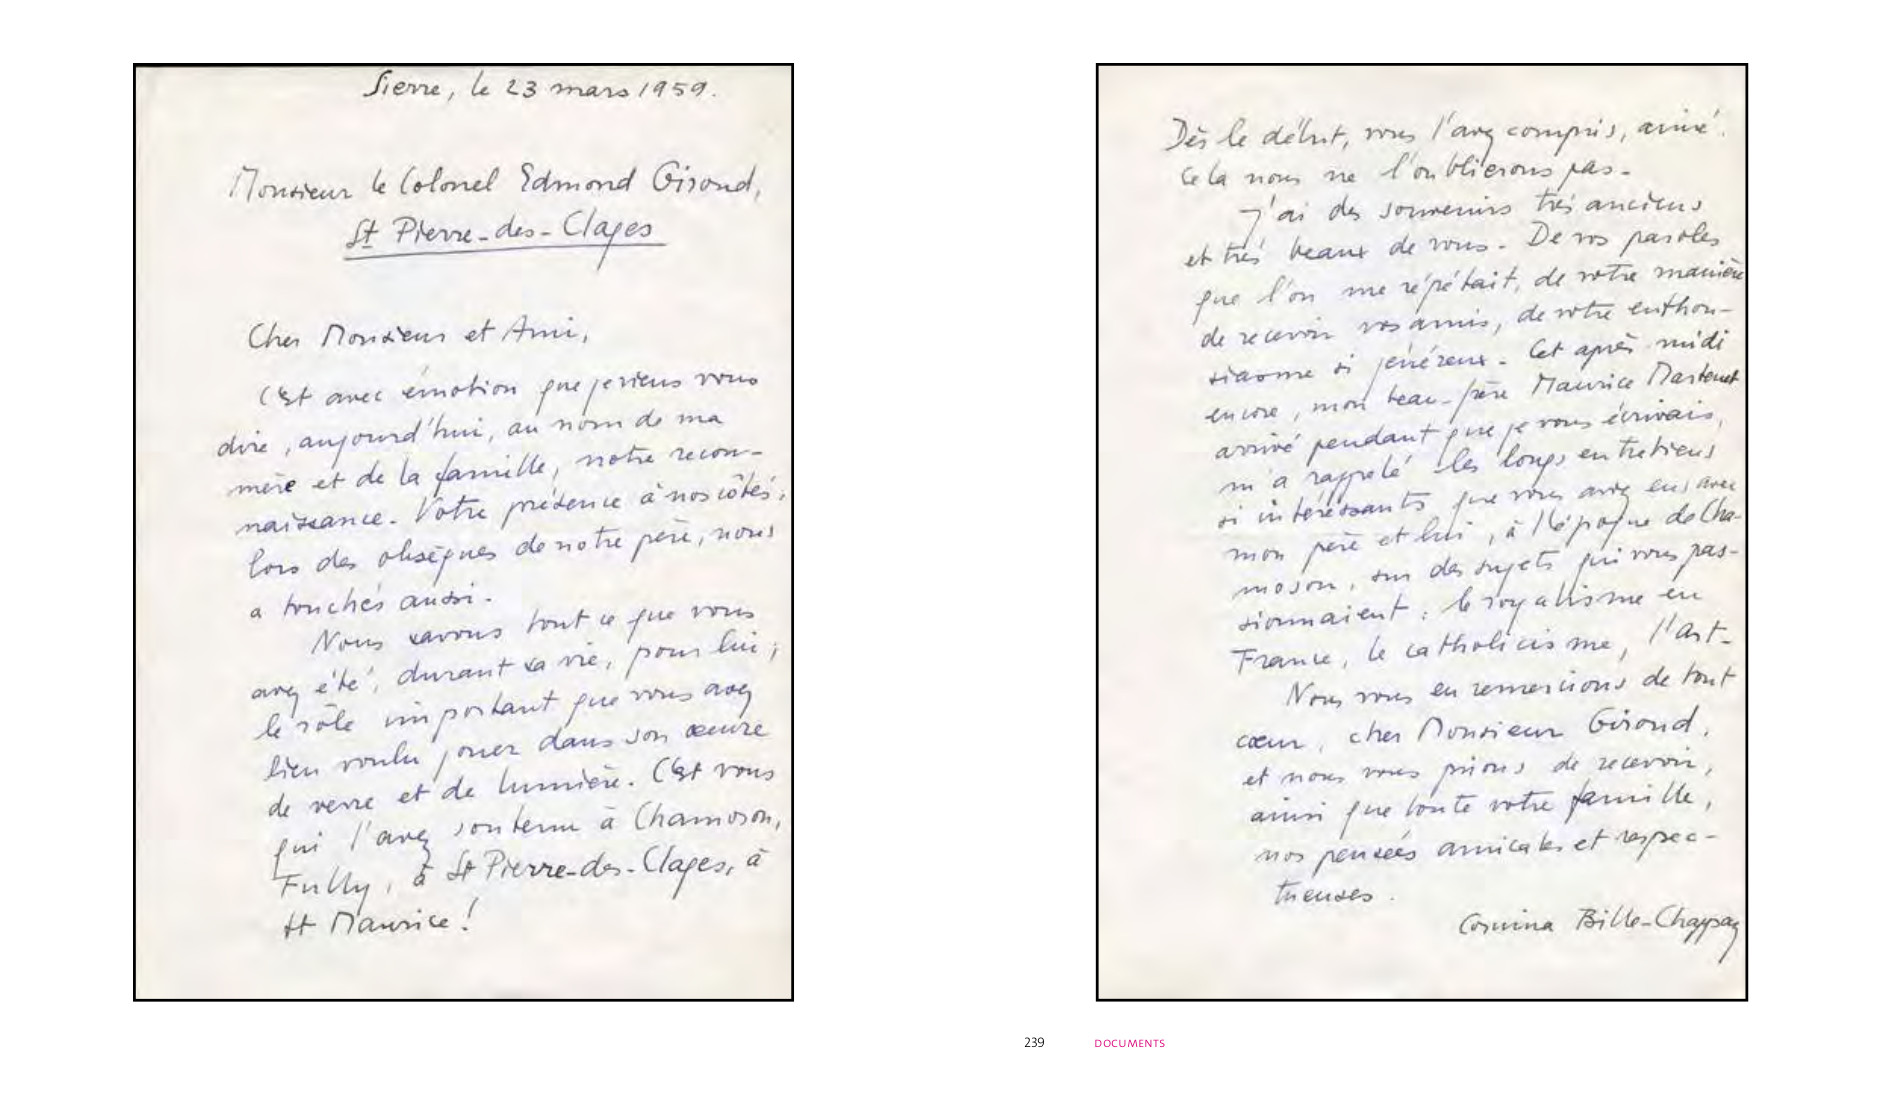 Sierre, le 23 mars 1959.
Monsieur le Colonel Edmond Giroud,
St Pierre-des-Clages
Cher Monsieur et Ami,
C'est avec émotion que je viens vous
dire, aujourd'hui, au nom de ma
mère et de la famille, notre recon-
naissance. Votre présence à nos côtés,
lors des obsèques de notre père, nous
a touchés aussi.
Nous savons tout ce que vous
avez été, durant sa vie, pour lui ;
le rôle important que vous avez
bien voulu jouer dans son œuvre
de verre et de lumière. C'est vous
qui l'avez soutenu à Chamoson,
Fully, à St Pierre-des-Clages, à
St Maurice !
Dès le début, vous l'avez compris, aimé.
Cela nous ne l'oublierons pas.
J'ai des souvenirs très anciens
et très beaux de vous. De vos paroles
que l'on me répétait, de votre manière
de recevoir vos amis, de votre enthou-
siasme si généreux. Cet après-midi
encore, mon beau-frère Maurice Martenet
arrivé pendant que je vous écrivais,
m'a rappelé les longs entretiens
si intéressants que vous avez eus avec
mon père et lui, à l'époque de Cha-
moson, sur des sujets qui vous pas-
sionnaient : le royalisme en
France, le catholicisme, l'art.
Nous vous en remercions de tout
cœur, cher Monsieur Giroud,
et nous vous prions de recevoir,
ainsi que toute votre famille,
nos pensées amicales et respec-
tueuses.
Corinna Bille-Chappaz
239 DOCUMENTS